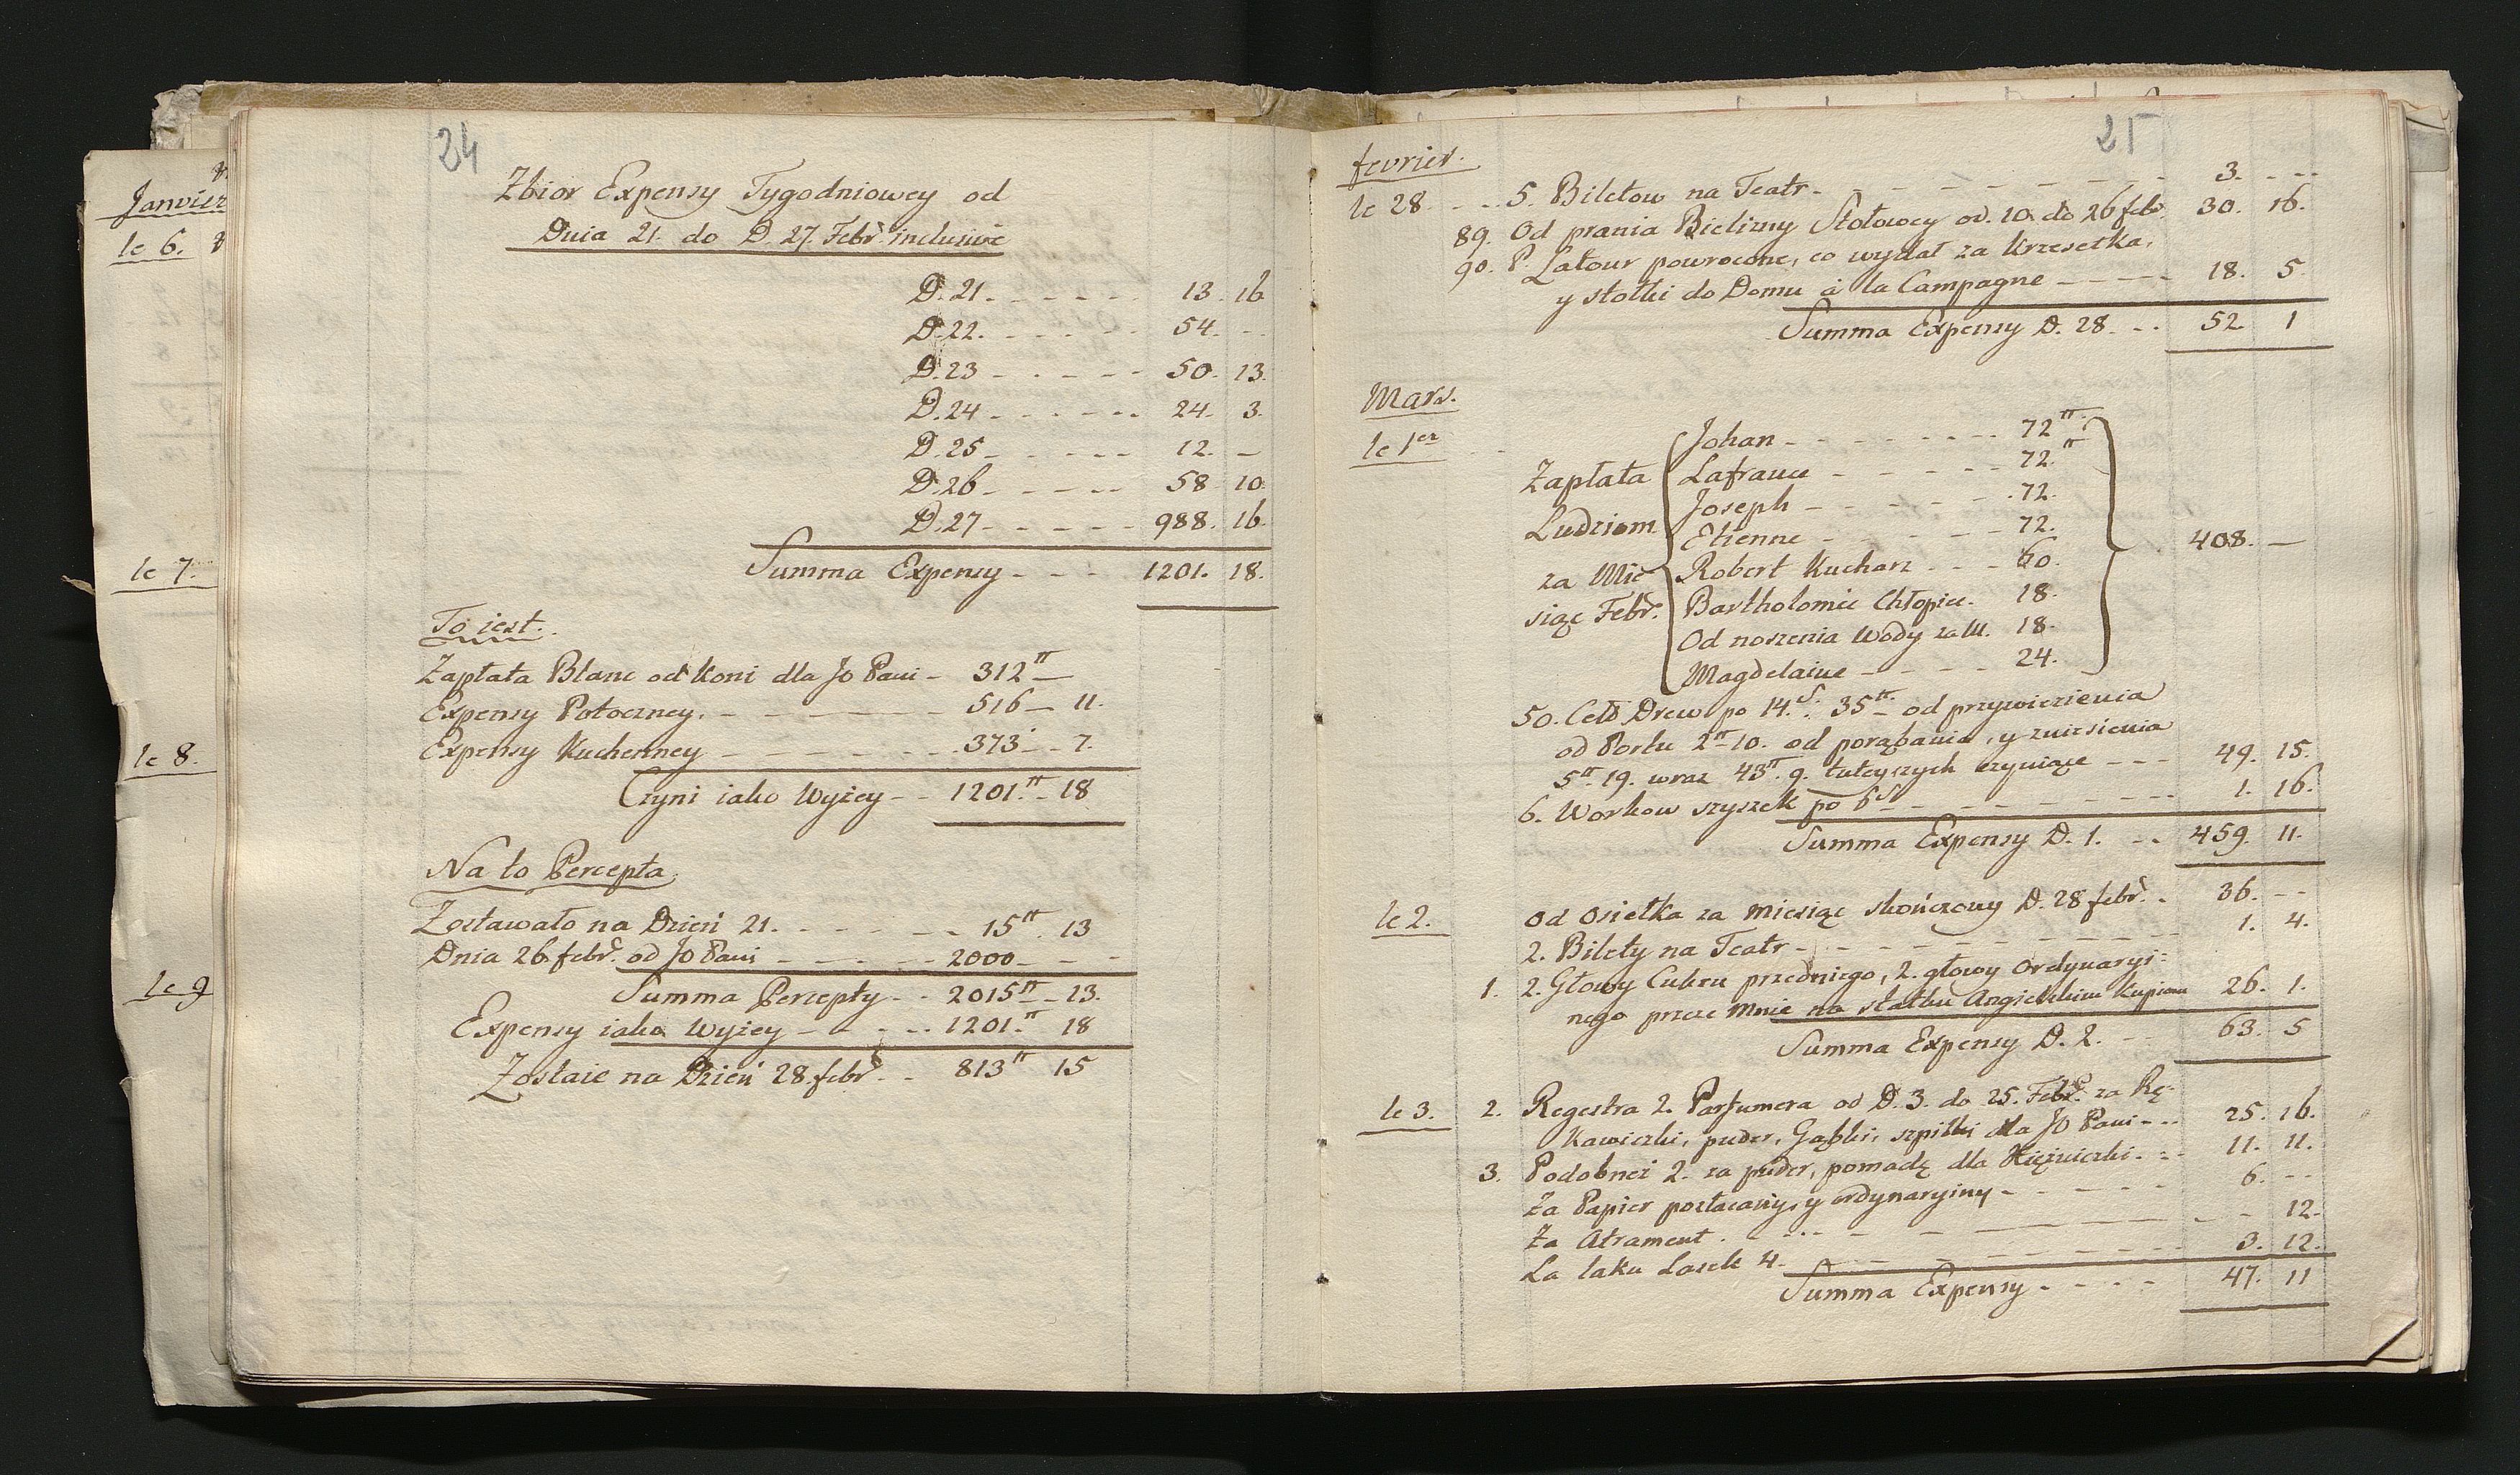 Janvier
le 6.
le 7.
le 8.
le 9
24
Zbior Expensy Tygodniowey od
Dnia 21. do D. 27. Febr. inclusive
D. 21. - - - - - 13. 16
D. 22. - - - - - 54. - -
D. 23 - - - - - 50. 13.
D. 24 - - - - - 24. 3.
D. 25 - - - - - 12. -
D. 26 - - - - - 58 10.
D. 27 - - - - - 988. 16.
Summa Expensy - - - 1201. 18.
To iest.
Zapłata Blanc od koni dla Jo Pani - 312 tt —
Expensy Potoczney. - - - 516 — 11.
Expensy Kuchenney - - - 373 - - 7.
Czyni iako Wyżey - - 1201. tt - 18
Na to Percepta.
Zostawało na Dzień 21. - - - - 15 tt. 13
Dnia 26. febr. od Jo Pani - - - 2000 - - -
Summa Percepty - - 2015 tt - 13.
Expensy iako Wyżey - - - 1201. tt 18
Zostaie na Dzień 28. febr. - - 813 tt 15
25
fevrier.
le 28. - - 5. Biletow na Teatr - - - - - 3. - - -
89. Od prania Bielizny Stołowey od. 10. do 26 febr. 30. 16.
90. P. Latour powrocone, co wydał za krzesełka,
y stołki do Domu à la Campagne - - - - 18. 5.
Summa Expensy D. 28. - - 52. 1
Mars.
le 1er
Johan - - - - - 72 tt.
Zapłata Lafrance - - - - 72. tt
Joseph - - - - 72.
Ludziom Etienne - - - - 72.
408. —
za Mie- Robert Kucharz - - - 60.
siąc Febr. Bartholomie Chłopiec. 18.
Od noszenia Wody za M. 18.
Magdelaine - - - - 24.
50. Cetb Drew po 14. s. 35 tt. - od przywiezienia
od Portu 2 tt 10. od porąbania, y zniesienia
5 tt 19. wraz 43 tt. 9. tuteyszych czyniące - - - 49. 15.
6. Workow szyszek po 6 s - - - - - 1. 16.
Summa Expensy D. 1. - - 459. 11.
le 2. Od Osiełka za Miesiąc skończony D. 28 febr. - 36. - -
2. Bilety na Teatr - - - - - 1. 4.
1. 2. Głowy Cukru przedniego, 2. głowy Ordynaryi-
nego przeze Mnie na statku Angielskim Kupione 26. 1.
Summa Expensy D. 2. - - 63. 5
le 3. 2. Regestra 2. Parfumera od D. 3. do 25. Febr. za Rę-
kawiczki, puder, Gąbki, szpilki dla Jo Pani - - - 25. 16.
3. Podobneż 2. za puder, pomadę dla Xiężniczki. - - 11. 11.
Za Papier pozłacany, y ordynaryiny - - - - 6. - -
Za Atrament. - - - - - 12.
Za laku Lasek 4. - - - - - 3. 12.
Summa Expensy - - - - 47. 11